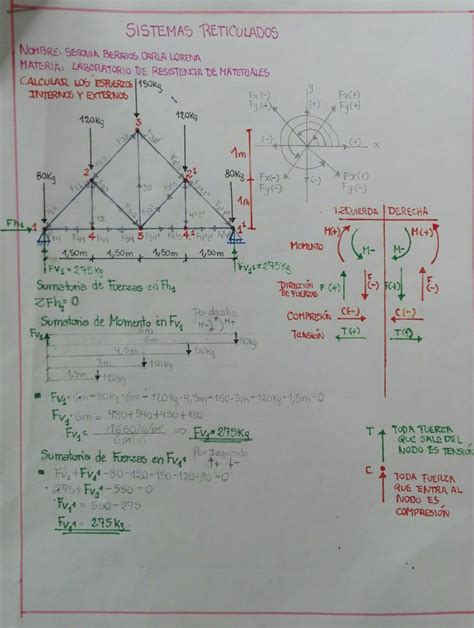 SISTEMAS RETICULADOS
NOMBRE: SEGOVIA BERRIOS CARLA LORENA
MATERIA: LABORATORIO DE RESISTENCIA DE MATERIALES
CALCULAR LOS ESFUERZOS
INTERNOS Y EXTERNOS
150Kg
120Kg
120Kg
80Kg
80Kg
3
2
2'
1
4
5
4'
1'
Fh1
1m
1m
1,50m
1,50m
1,50m
1,50m
FV1 = 275Kg
FV1' = 275Kg
y
x
Fx(-)
Fy(+)
Fx(+)
Fy(+)
(+)
(-)
(+)
(-)
Fx(-)
Fy(-)
Fx(+)
Fy(-)
IZQUIERDA
DERECHA
MOMENTO
M(+)
M-
M-
M(+)
DIRECCIÓN
DE FUERZO
F(+)
F(-)
F(+)
F(-)
COMPRESIÓN
C(-)
C(-)
TENSIÓN
T(+)
T(+)
Sumatoria de Fuerzas en Fh1
ΣFh1 = 0
Sumatoria de Momento en FV1
Por derecha
M- M+
FV1
6m
80Kg
4,5m
120Kg
3m
150Kg
1,5m
120Kg
FV1·6m-80Kg·6m-120Kg·4,5m-150·3m-120Kg·1,5m=0
FV1·6m= 480+540+450+180
FV1= 1650Kg/m / 6m ⇒ FV1=275Kg
Sumatoria de Fuerzas en FV1'
Por Izquierda
↑+ ↓-
FV1+FV1'-80-120-150-120-80=0
275+FV1'-550=0
FV1'=550-275
FV1' = 275Kg
T
TODA FUERZA
QUE SALE DEL
NODO ES TENSIÓN
C
TODA FUERZA
QUE ENTRA AL
NODO ES
COMPRESIÓN